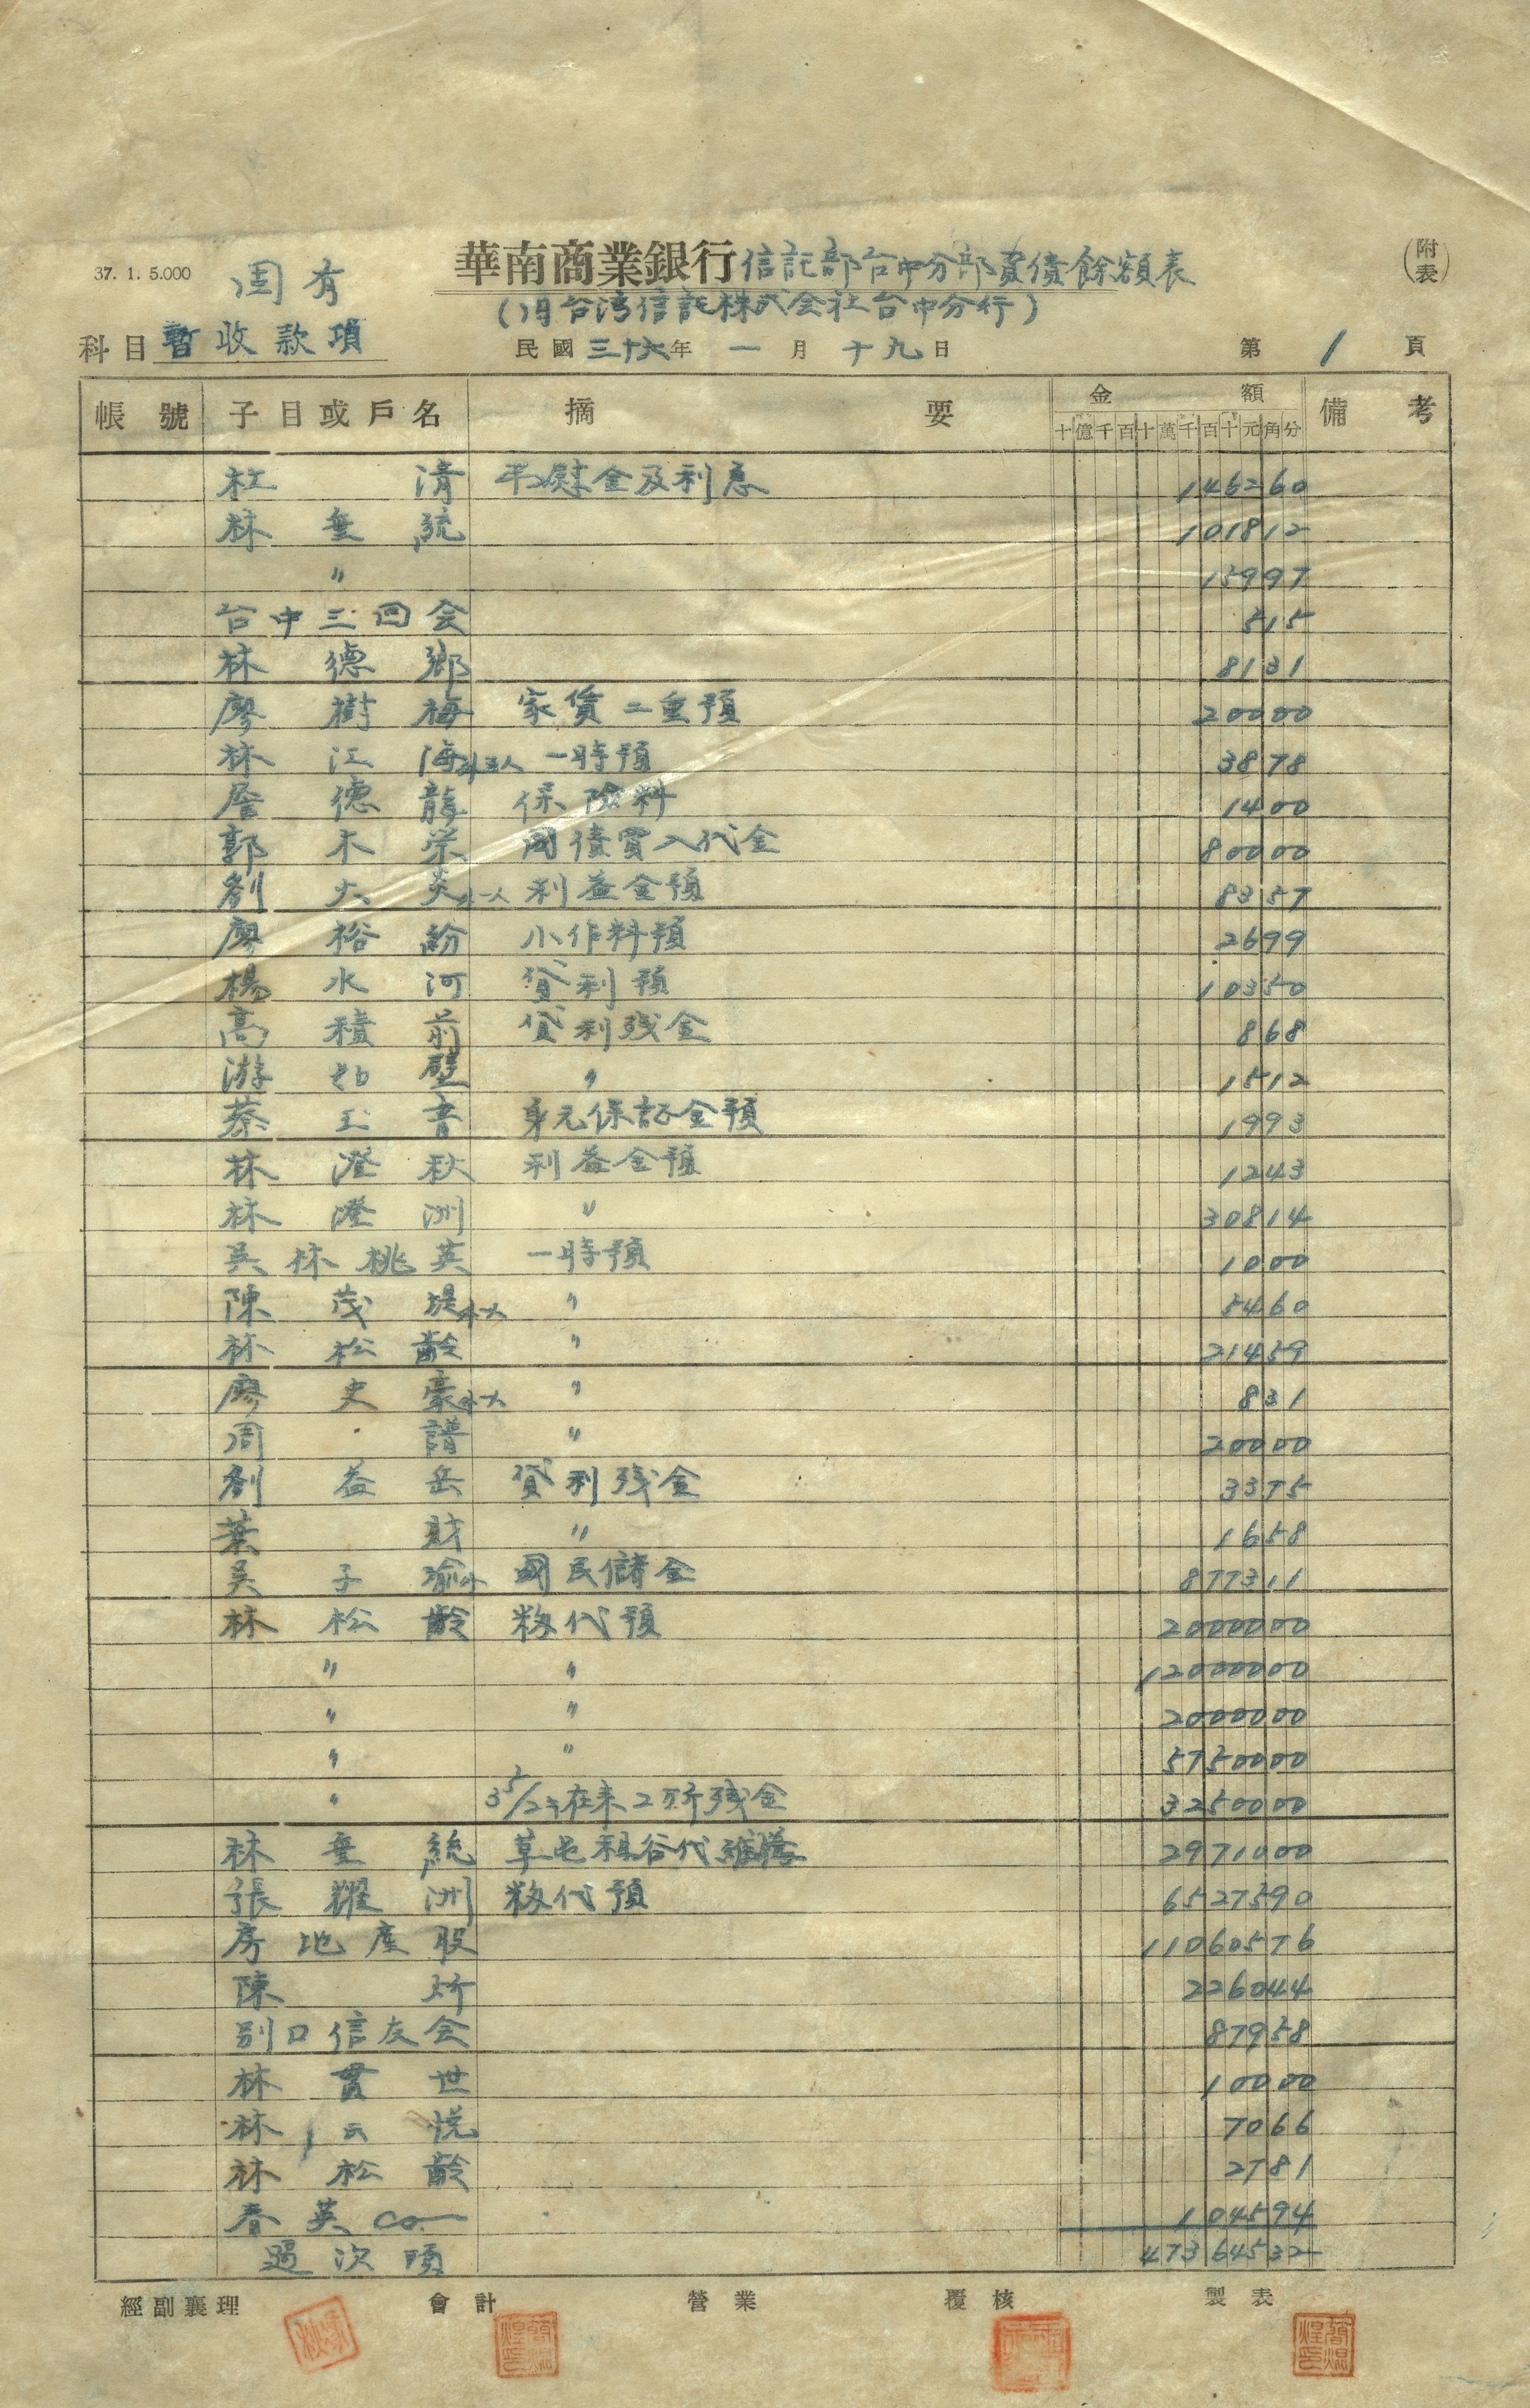 37. 1. 5.000
固有
華南商業銀行信託部台中分部資債餘額表
(附表)
(旧台湾信託株式会社台中分行)
科目 暫收款項
民國三十六年一月十九日
第1頁
帳號 子目或戶名 摘要 金額 備考
十億千百十萬千百十元角分
杜清 弔慰金及利息 146260
林垂統 101812
〃 15997
台中三四会 515
林德鄉 8131
廖樹梅 家賃二重預 20000
林江海外三人 一時預 3878
詹德龍 保險料 1400
郭木榮 國債買入代金 80000
劉火炎外一人 利益金預 8357
廖裕紛 小作料預 2699
楊水河 貸利預 10350
高積前 貸利残金 868
游 壁 〃 1512
蔡玉音 身元保証金預 1993
林澄秋 利益金預 1243
林澄洲 〃 30814
吳林桃英 一時預 1000
陳茂堤 〃 5460
林松齡 〃 21459
廖史豪 〃 831
周譜 〃 20000
劉益岳 貸利残金 3375
葉財 〃 1658
吳子瑜外 國民儲金 877311
林松齡 籾代預 2000000
〃 〃 12000000
〃 〃 2000000
〃 〃 5750000
〃 残金 3250000
林垂統 草屯租谷代 2971000
張耀洲 籾代預 6527590
房地産股 11060576
陳炘 226044
別口信友会 87958
林貫世 10000
林云悦 7066
林松齡 2781
春英co. 104594
過次頁 47364532
經副襄理 會計 營業 覆核 製表